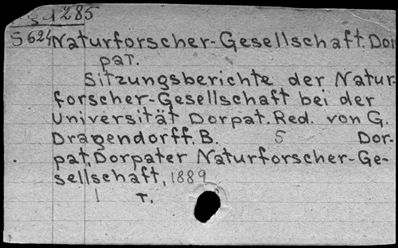 1285
S624 Naturforscher-Gesellschaft. Dor
pat.
Sitzungsberichte der Natur-
forscher-Gesellschaft bei der
Universität Dorpat. Red. von G.
Dragendorff. B. 5 Dor-
pat, Dorpater Naturforscher-Ge-
sellschaft, 1889
1 т.